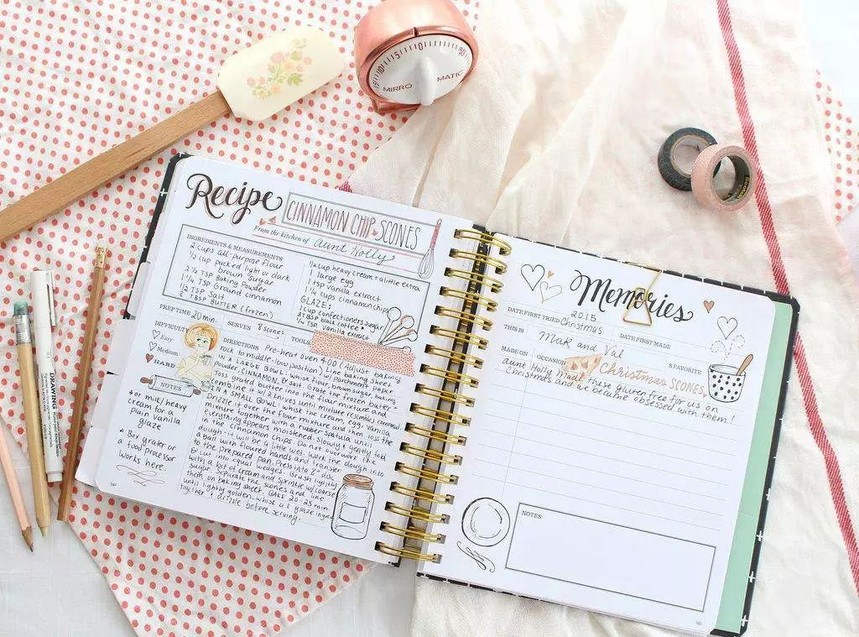 MIRRO MATIC
10 5 0
DRAWING
Recipe CINNAMON CHIP SCONES
From the kitchen of Aunt Holly
INGREDIENTS & MEASUREMENTS
2 cups all purpose flour
1/3 cup packed light or dark
brown sugar
2 1/4 TSP Baking Powder
1 1/4 TSP Ground cinnamon
TSP Salt
TBSP BUTTER (frozen)
cup heavy cream + a little extra
large egg
1 tsp vanilla extract
1 1/4 cups cinnamon chips
GLAZE:
1 cup confectioners sugar
coffee
TSP vanilla extract
PREP TIME 20 min. SERVES 8 scones
DIFFICULTY
Easy
Medium
HARD
TOOLS
DIRECTIONS Pre-heat oven 400 (Adjust
rack to middle-low position) Line baking sheet
parchment paper
in a LARGE BOWL: whisk the flour, baking
grate the frozen butter
2 knives until mixture resembles
in a SMALL BOWL, whisk the cream, egg, vanilla
Drizzle it over the flour mixture and then toss the
mixture together with a rubber spatula until
everything appears moistened. Slowly + gently fold
in the cinnamon chips. Do not overwork the
dough - it will be a little wet. Work the dough into
a ball with floured hands and transfer
to the prepared pan. Press into 8" disk
& cut into 8 equal wedges. Brush lightly
with a bit of cream and sprinkle w/coarse
sugar. Separate the scones and line
them on baking sheet. BAKE 20-25 min
until lightly golden. whisk all glaze
together + drizzle before serving.
NOTES
* or milk/heavy
cream for a
plain vanilla
glaze
* Box grater or
a food processor
works here.
Memories
DATE FIRST TRIED Christmas 2015 DATE FIRST MADE
THIS IS Mak and Val 'S FAVORITE
MADE ON OCCASION Christmas SCONES
Aunt Holly made these gluten free for us on
Christmas and we became obsessed with them!
NOTES